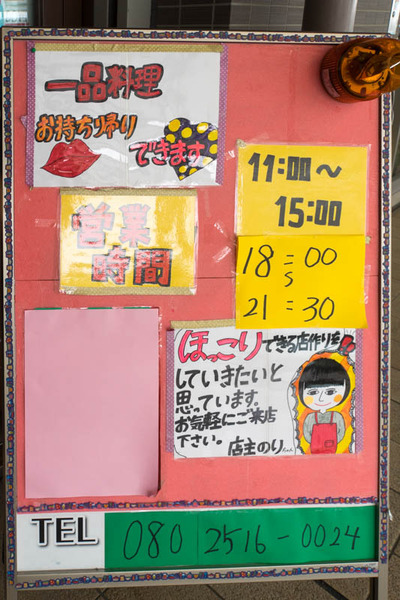 一品料理
お持ち帰り
できます
営業
時間
11:00～
15:00
18:00
～
21:30
ほっこりできる店作りを!!
していきたいと
思っています。
お気軽にご来店
下さい。 店主のり
TEL 080 2516-0024